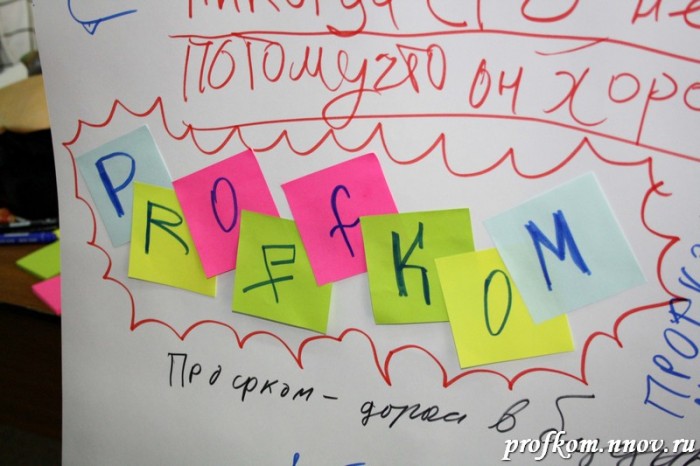 никогда
ПОТОМУ ЧТО ОН ХОРО
PROFfKOM
Профком - дорога в
ПРОФК
profkom.nnov.ru